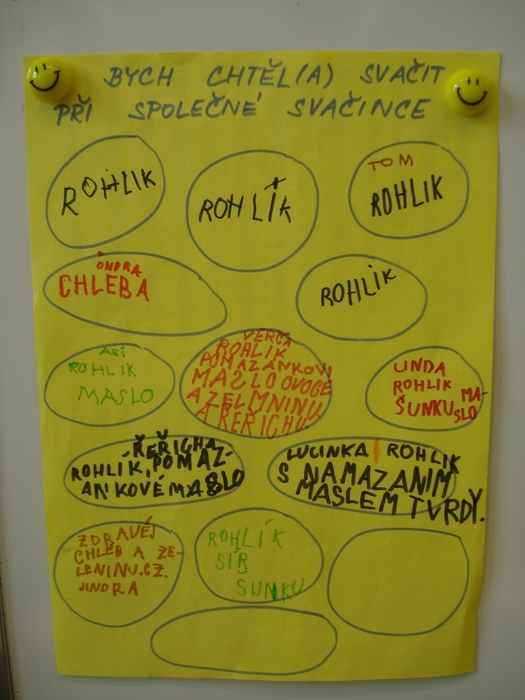 BYCH CHTĚL(A) SVAČIT
PŘI SPOLEČNÉ SVAČINCE
ROHLIK
ROHLÍK
TOM
ROHLIK
ONDRA
CHLEBA
ROHLIK
ROHLIK
MASLO
VERČA
ROHLIK
POMAZÁNKOVÍ
MASLO OVOCE
A ZELMNINU
A ŘEŘICHU
LINDA
ROHLIK MA-
ŠUNKU SLO
ŘEŘICHA
ROHLÍK, POMAZ-
ANKOVÉ MASLO
LUCINKA | ROHLIK
S NAMAZANIM
MASLEM TVRDY.
ZDRAVÉJ
CHLEB A ZE-
LENINU.CZ.
JINDRA
ROHLÍK
SÍR
SUNKU